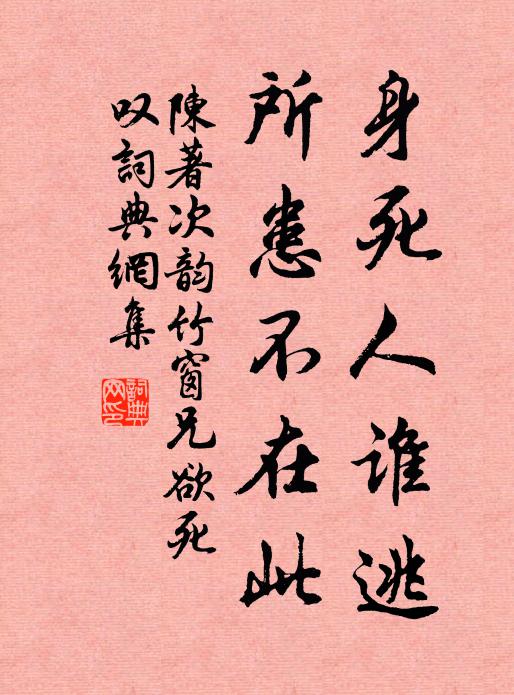 身死人谁逃
所患不在此
陳著次韵竹窗兄欲死
叹詞典網集
詞典
网印